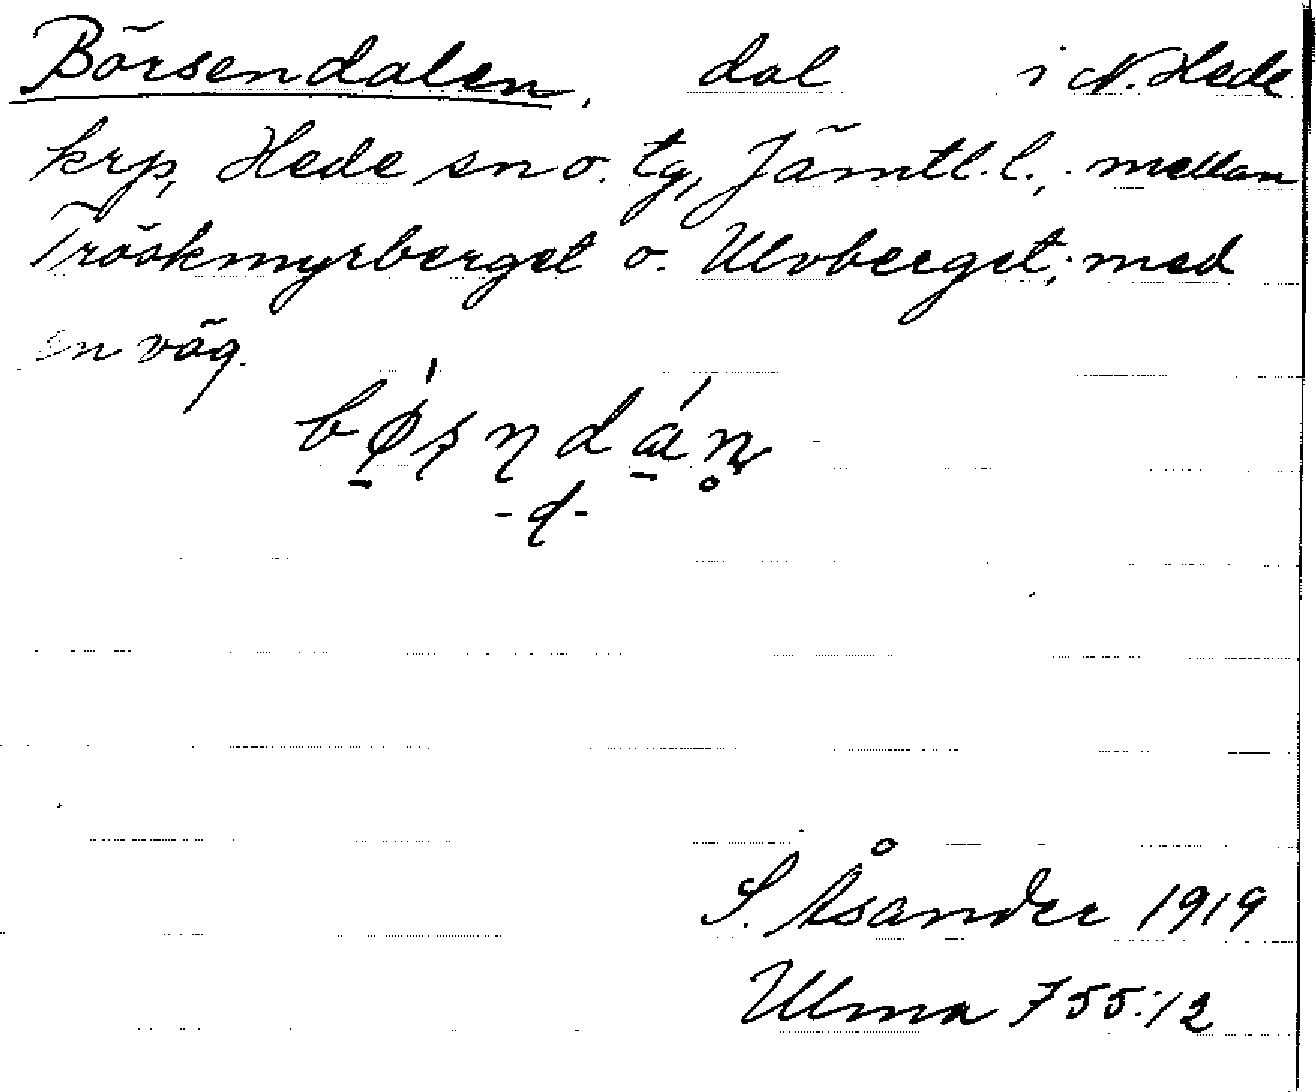 Börsendalen, dal i N. Hede
krp, Hede sn o. tg, Jämtl. l., mellan
Tröskmyrberget o. Ulvberget; med
en väg.
S. Åsander 1919
Ulma 755:12